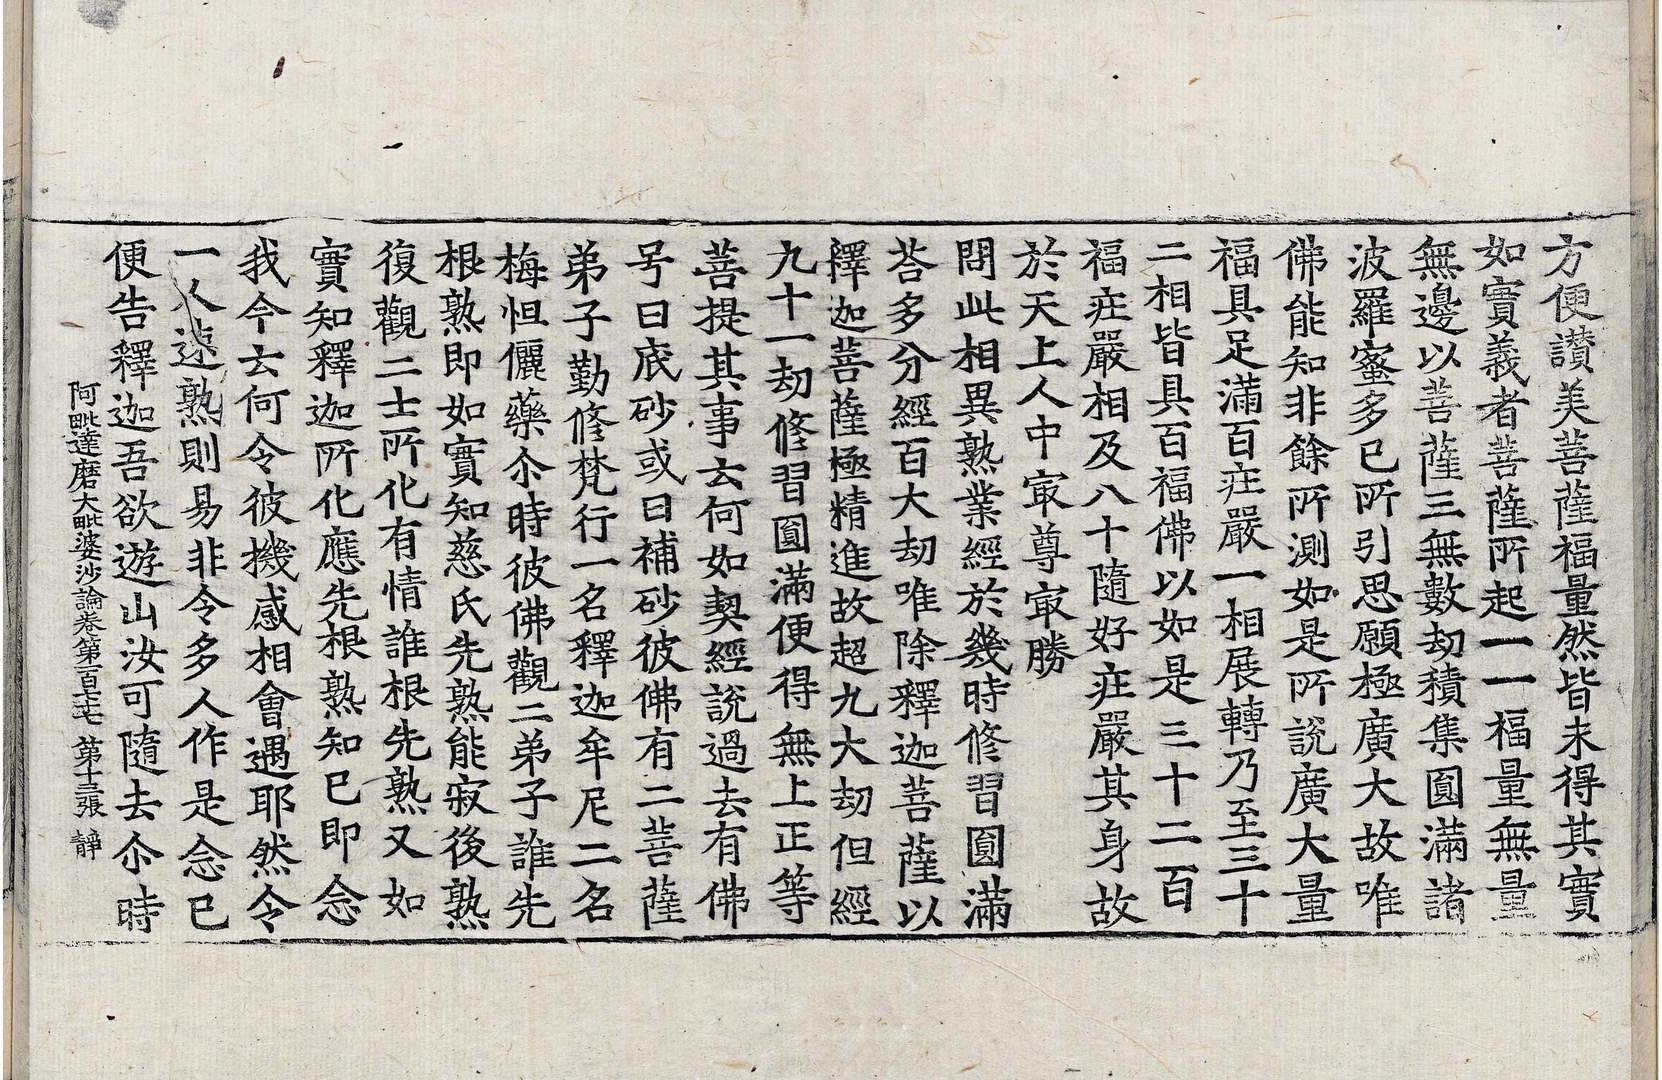 方便讃美菩薩福量然皆未得其實
如實義者菩薩所起一一福量無量
無邊以菩薩三無數劫積集圓滿諸
波羅蜜多已所引思願極廣大故唯
佛能知非餘所測如是所說廣大量
福具足滿百庄嚴一相展轉乃至三十
二相皆具百福佛以如是三十二百
福庄嚴相及八十隨好庄嚴其身故
於天上人中㝡尊㝡勝
問此相異熟業經於幾時修習圓滿
荅多分經百大劫唯除釋迦菩薩以
釋迦菩薩極精進故超九大劫但經
九十一劫修習圓滿便得無上正等
菩提其事云何如契經說過去有佛
号曰底砂或曰補砂彼佛有二菩薩
弟子勤修梵行一名釋迦牟尼二名
梅怛儷藥尒時彼佛觀二弟子誰先
根熟即如實知慈氏先熟能寂後熟
復觀二士所化有情誰根先熟又如
實知釋迦所化應先根熟知已即念
我今云何令彼機感相會遇耶然令
一人速熟則易非令多人作是念已
便告釋迦吾欲遊山汝可隨去尒時
阿毗達磨大毗婆沙論卷第百七十七 第十三張 靜